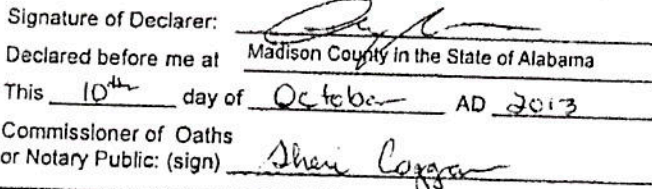 Signature of Declarer:
Declared before me at Madison County in the State of Alabama
This 10th day of October AD 2013
Commissioner of Oaths
or Notary Public: (sign) Sheri